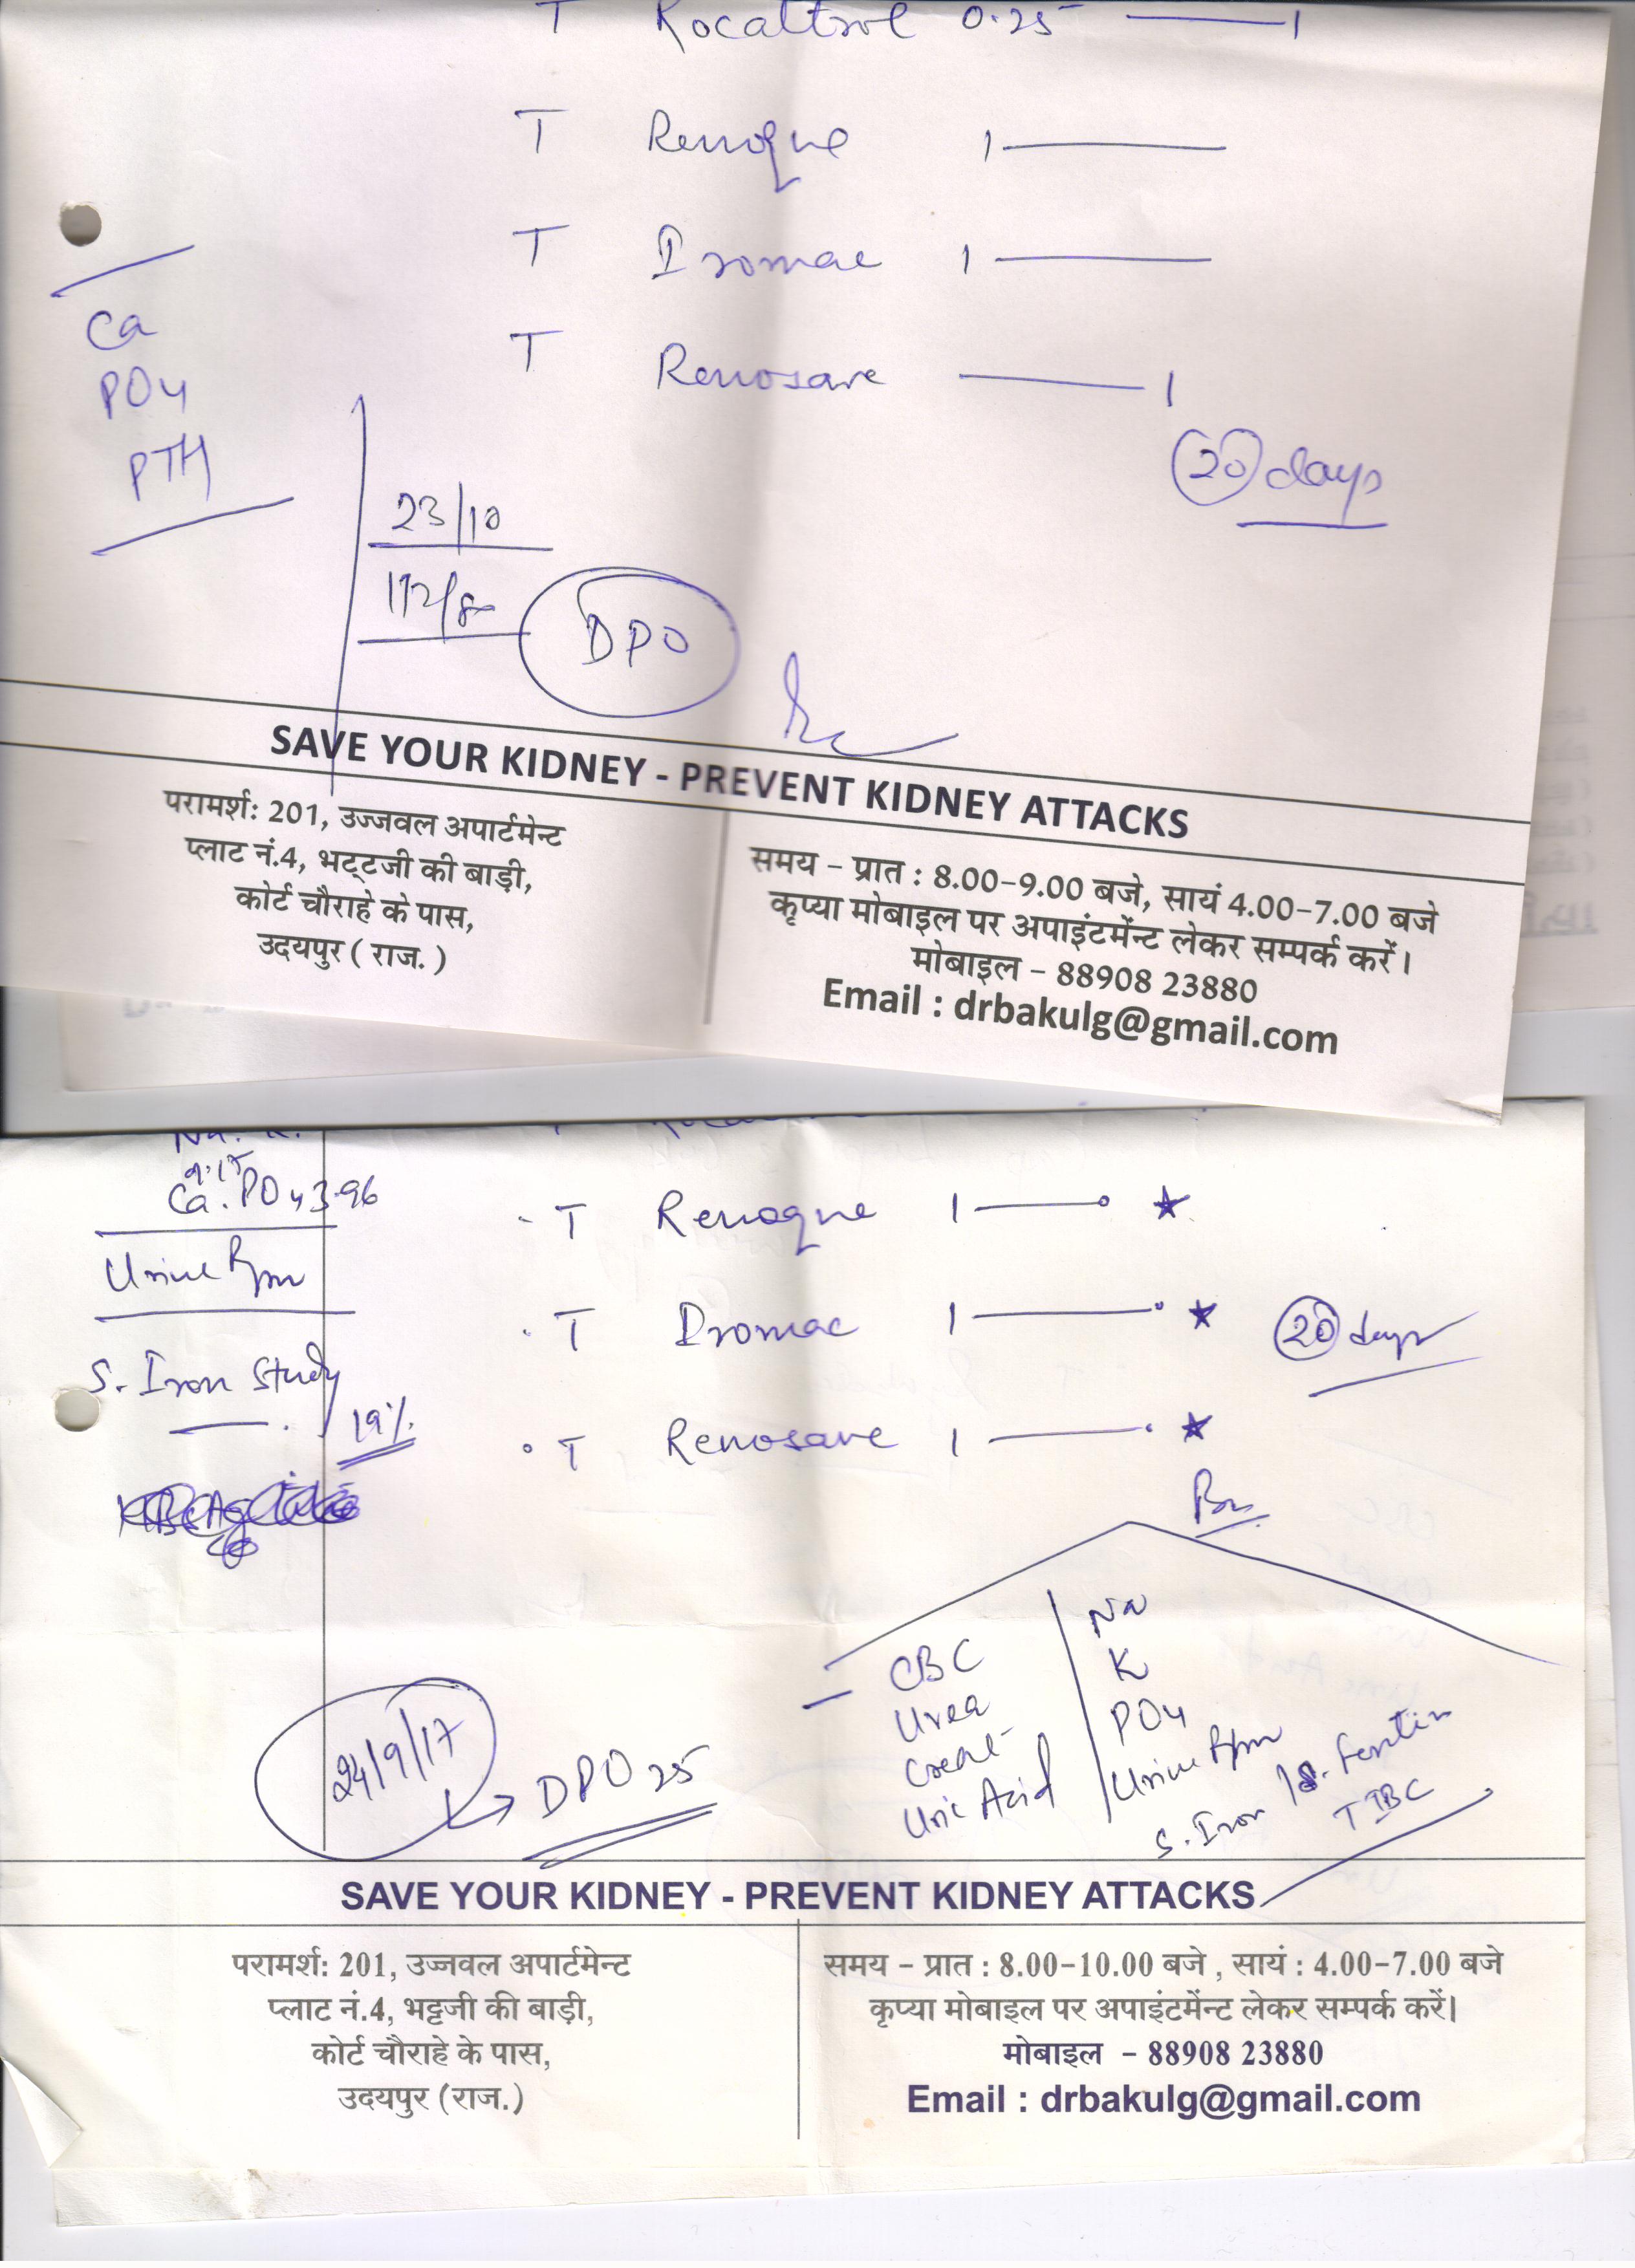 T Rocaltrol 0.25 —— 1
T Renoque 1 ——
T Iromac 1 ——
T Renosave —— 1
20 days
Ca
PO4
PTH
23/10
112/80
DPO
SAVE YOUR KIDNEY - PREVENT KIDNEY ATTACKS
परामर्श: 201, उज्जवल अपार्टमेन्ट
प्लाट नं.4, भट्टजी की बाड़ी,
कोर्ट चौराहे के पास,
उदयपुर ( राज. )
समय - प्रात : 8.00-9.00 बजे, सायं 4.00-7.00 बजे
कृप्या मोबाइल पर अपाइंटमेंन्ट लेकर सम्पर्क करें।
मोबाइल - 88908 23880
Email : drbakulg@gmail.com
Na. K.
9.17
Ca. PO4 3.96
Urine
S. Iron Study
19%
T Renoque 1 ——
T Iromac 1 ——
T Renosave 1 ——
20 days
CBC
Urea
Creat
Uric Acid
Na
K
PO4
Urine
S. Iron / S. Ferritin
TIBC
24/9/17
DPO 25
SAVE YOUR KIDNEY - PREVENT KIDNEY ATTACKS
परामर्श: 201, उज्जवल अपार्टमेन्ट
प्लाट नं.4, भट्टजी की बाड़ी,
कोर्ट चौराहे के पास,
उदयपुर (राज.)
समय - प्रात : 8.00-10.00 बजे , सायं : 4.00-7.00 बजे
कृप्या मोबाइल पर अपाइंटमेंन्ट लेकर सम्पर्क करें।
मोबाइल - 88908 23880
Email : drbakulg@gmail.com